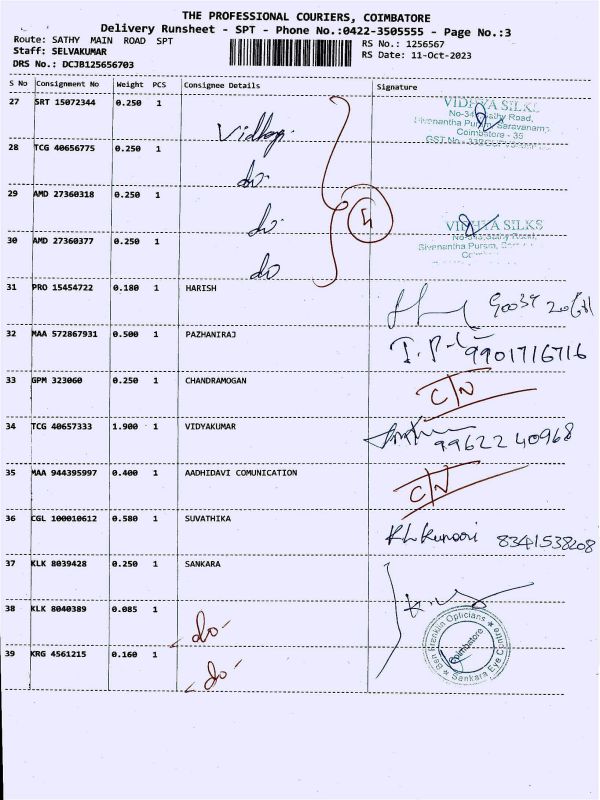 THE PROFESSIONAL COURIERS, COIMBATORE
Delivery Runsheet - SPT - Phone No.:0422-3505555 - Page No.:3
Route: SATHY MAIN ROAD SPT
RS No.: 1256567
Staff: SELVAKUMAR
RS Date: 11-Oct-2023
DRS No.: DCJB125656703
S No Consignment No Weight PCS Consignee Details Signature
27 SRT 15072344 0.250 1
VIDHYA SILKS
Sathy Road,
Sivenantha Puram, Saravanam
Coimbatore - 35
GST No
Vidhya
28 TCG 40656775 0.250 1
do
29 AMD 27360318 0.250 1
do
4
VIDHYA SILKS
Sivenantha Puram,
30 AMD 27360377 0.250 1
do
31 PRO 15454722 0.180 1 HARISH
32 MAA 572867931 0.500 1 PAZHANIRAJ I.P 9901716716
33 GPM 323060 0.250 1 CHANDRAMOGAN C/N
34 TCG 40657333 1.900 1 VIDYAKUMAR 9962240968
35 MAA 944395997 0.400 1 AADHIDAVI COMUNICATION C/N
36 CGL 100010612 0.580 1 SUVATHIKA 8341538208
37 KLK 8039428 0.250 1 SANKARA
38 KLK 8040389 0.085 1 -do-
39 KRG 4561215 0.160 1 -do-
Ben Franklin Opticians
Coimbatore
Sankara Eye Centre